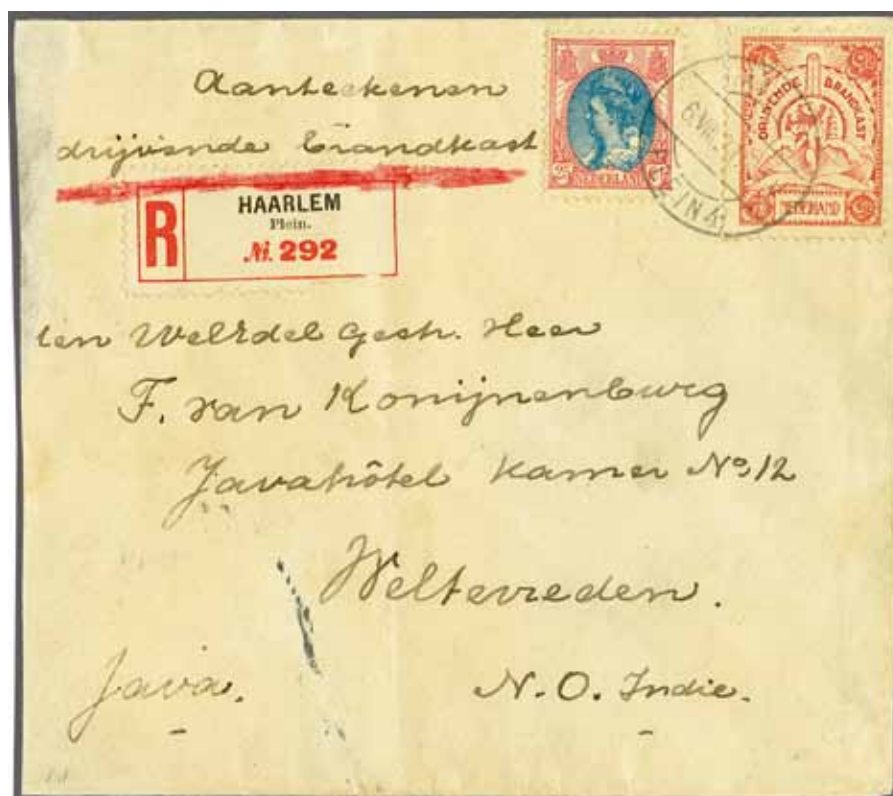 Aanteekenen
drijvende Brandkast
R
HAARLEM
Plein.
No. 292
25 ct
NEDERLAND
DRIJVENDE BRANDKAST
NEDERLAND
6.VIII
PLEIN
den WelEdel Gestr. Heer
F. van Konijnenburg
Javahôtel Kamer No 12
Weltevreden.
Java.
N.O. Indie.